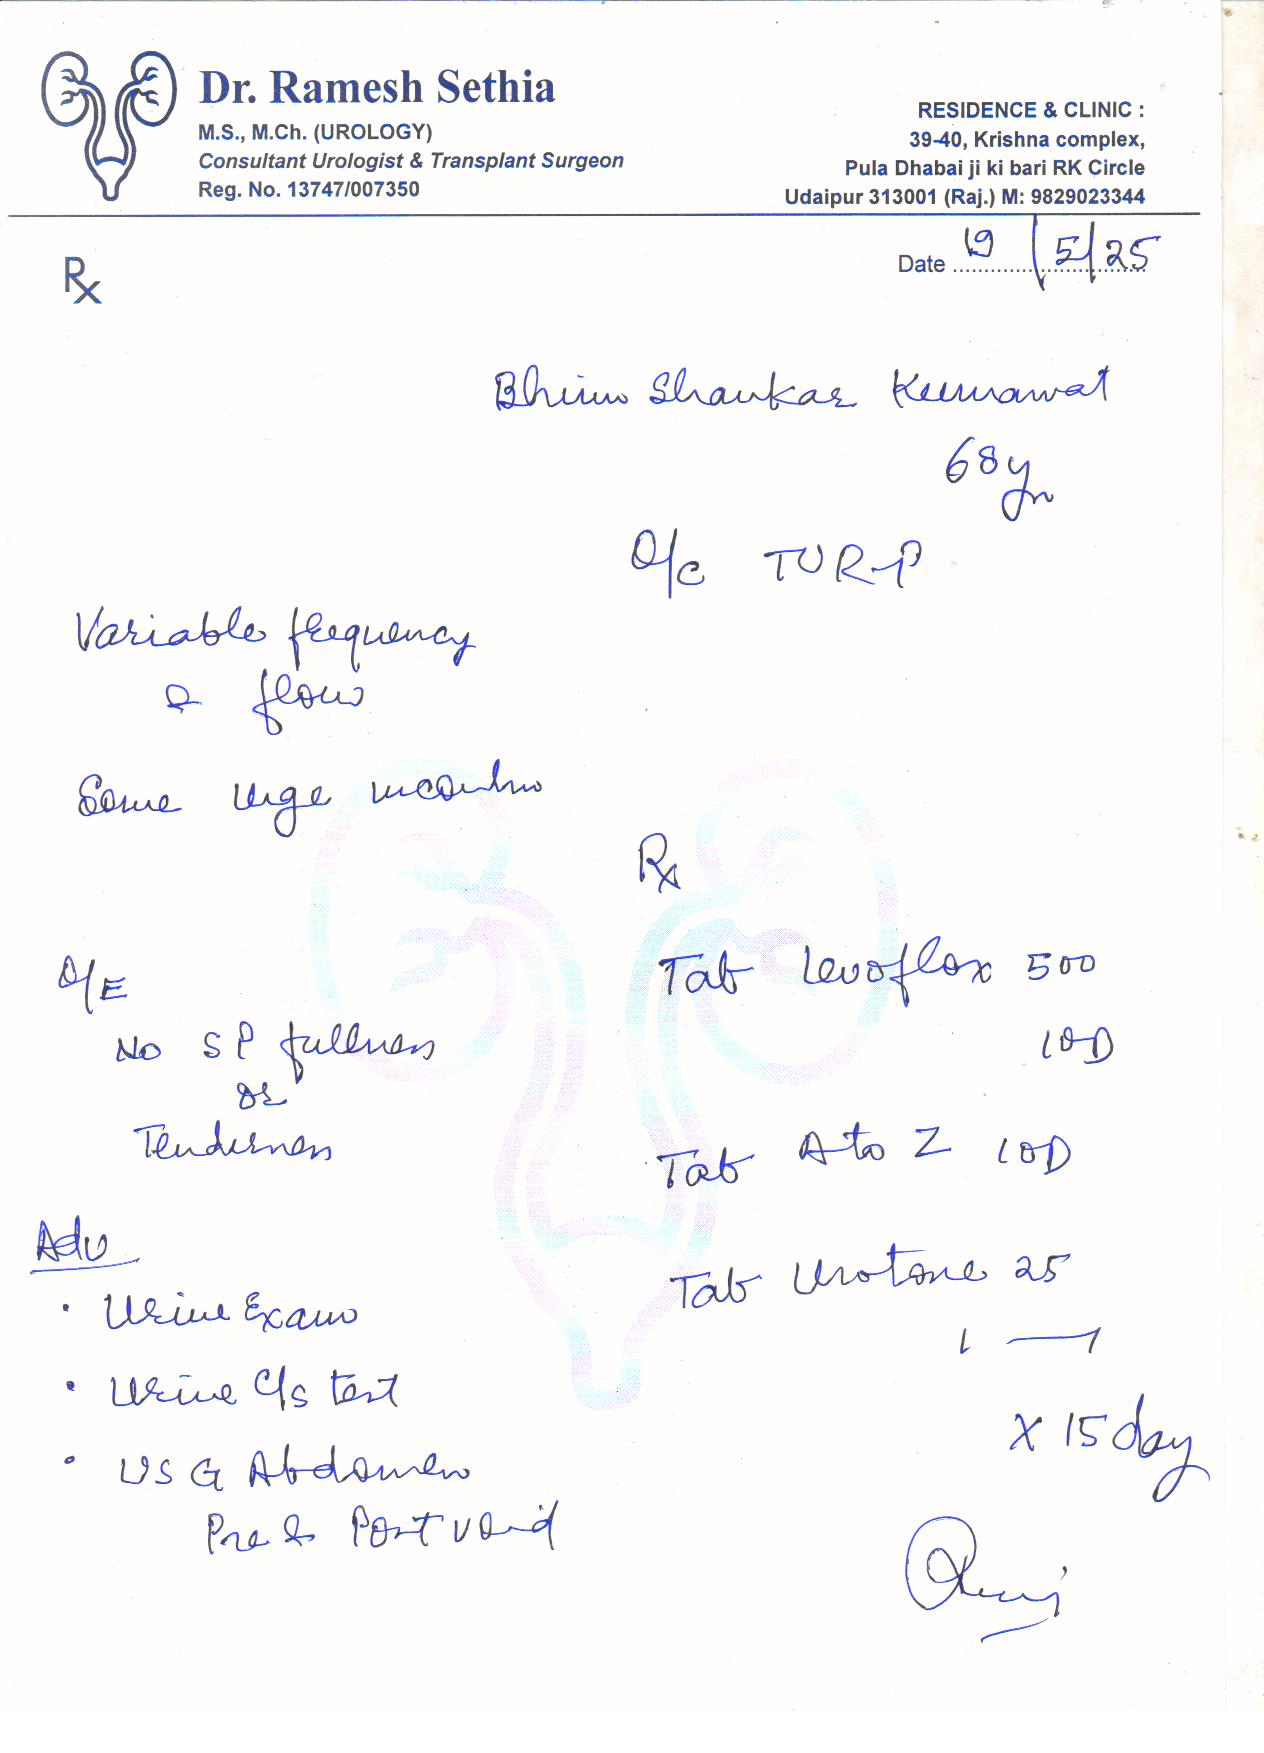 Dr. Ramesh Sethia
M.S., M.Ch. (UROLOGY)
Consultant Urologist & Transplant Surgeon
Reg. No. 13747/007350
RESIDENCE & CLINIC :
39-40, Krishna complex,
Pula Dhabai ji ki bari RK Circle
Udaipur 313001 (Raj.) M: 9829023344
Rx
Date 19/5/25
Bhim Shankar Kumawat
68yr
O/c TUR-P
Variable frequency
& flow
Some urge
O/E
No SP fullness
or
Tenderness
Adv
• Urine Exam
• Urine C/s test
• USG Abdomen
Pre & Post void
Rx
Tab Levoflox 500
1 OD
Tab A to Z 1 OD
Tab Urotone 25
1 — 1
x 15 day